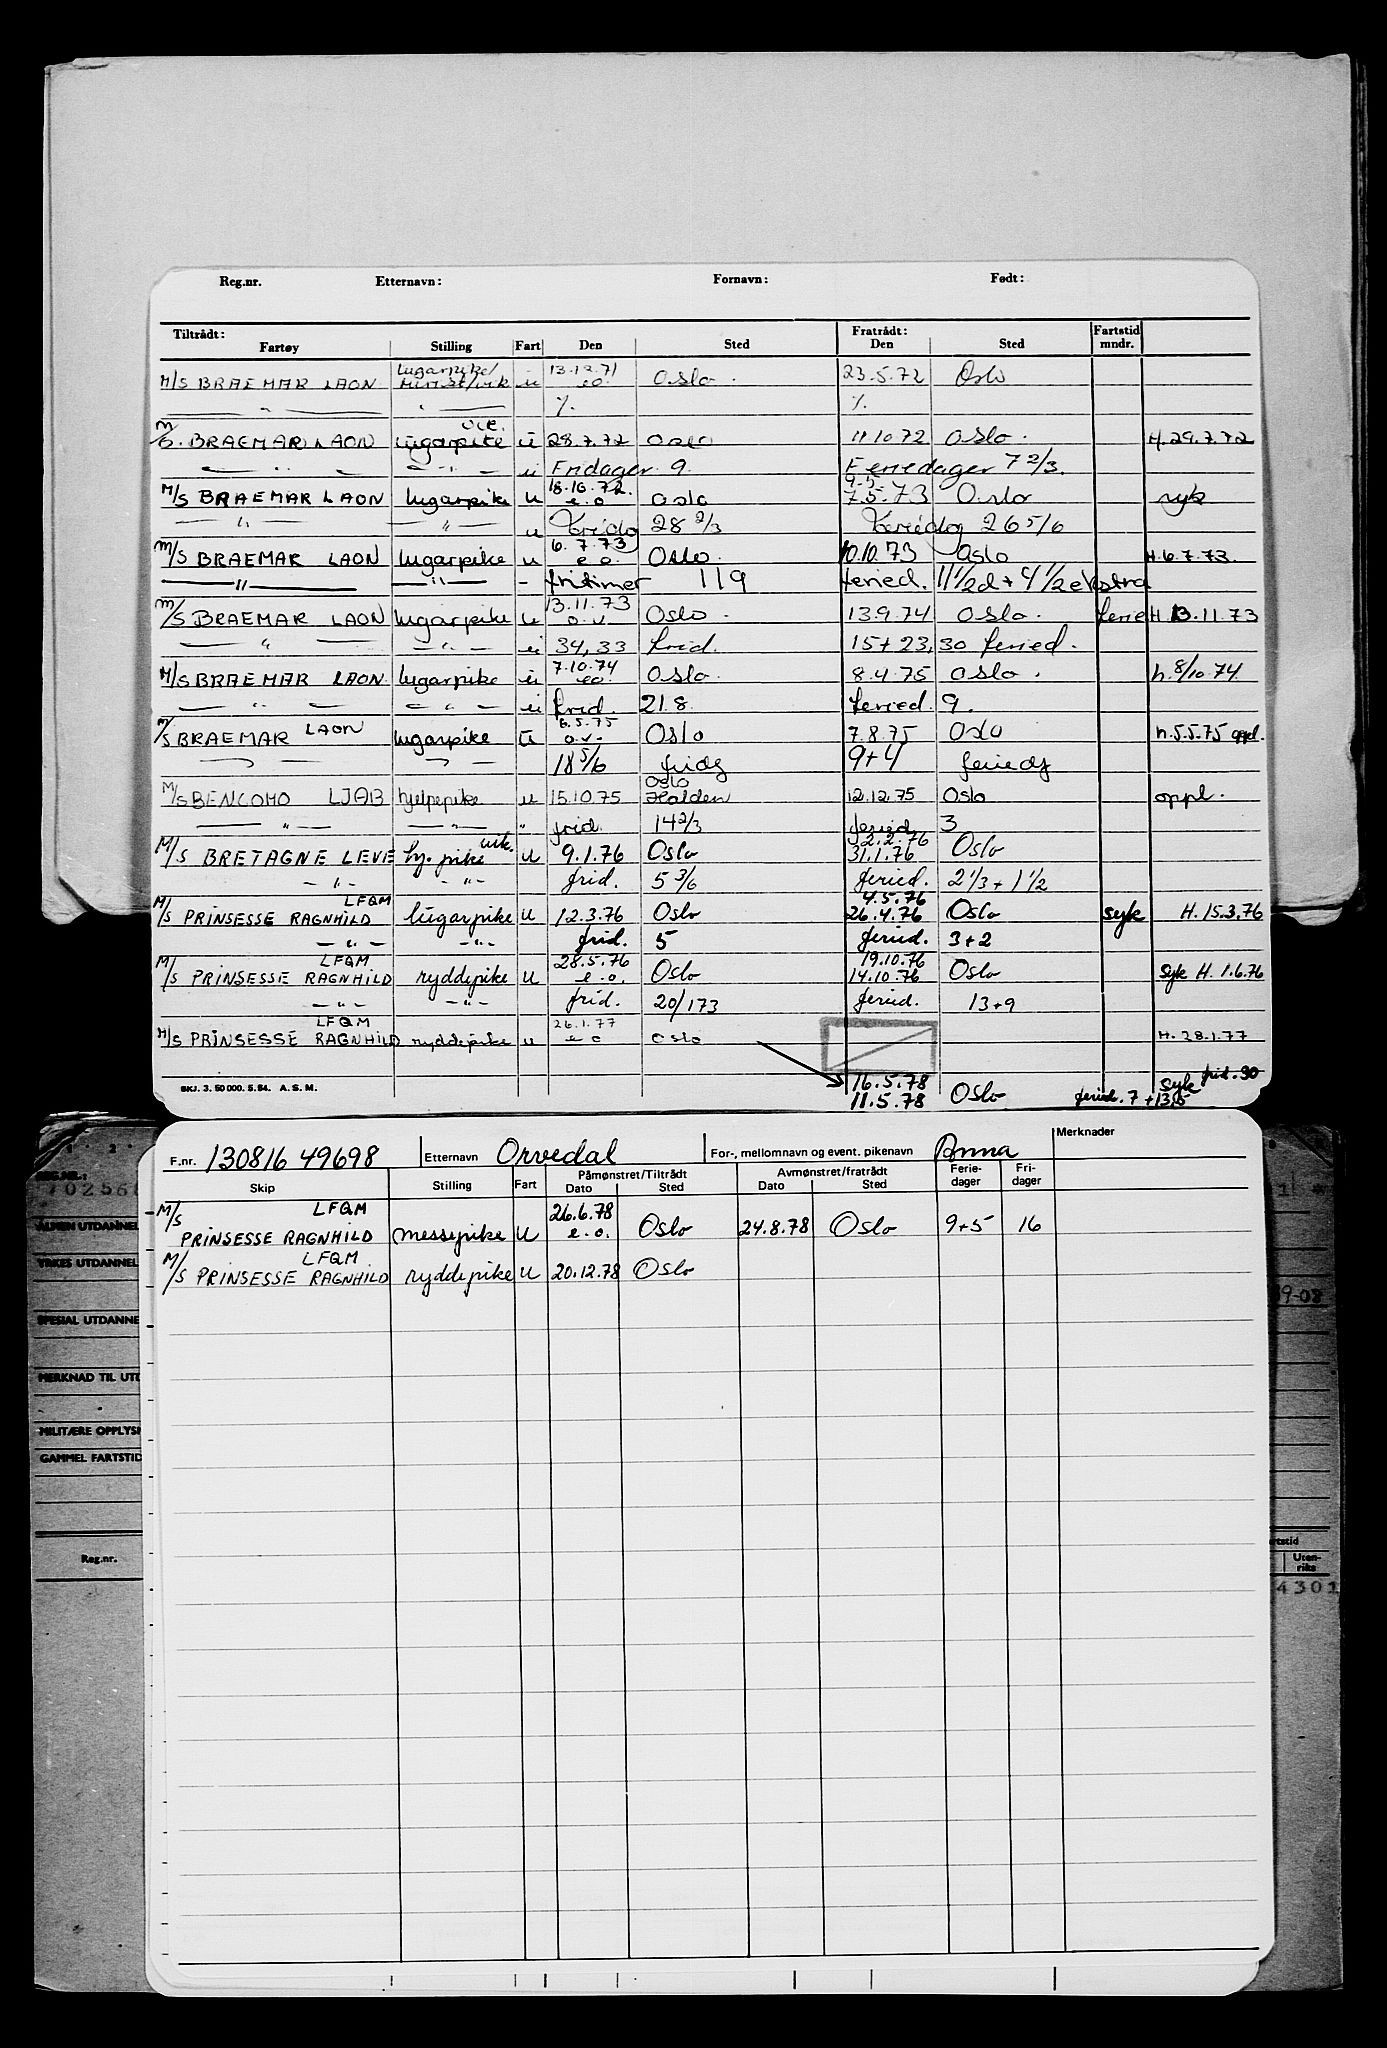 Reg.nr. Etternavn: Fornavn: Født:
Tiltrådt: Fratrådt: Fartstid
Fartøy Stilling Fart Den Sted Den Sted mndr.
M/S BRAEMAR LAON lugarpike/ u 13.12.71 e.o. Oslo. 23.5.72 Oslo
— " — " — % %
M/S. BRAEMAR LAON lugarpike u 28.7.72 Oslo 11.10.72 Oslo. H.29.7.72
— " — — " — u Fridager 9. Feriedager 7 2/3.
M/S BRAEMAR LAON lugarpike u 18.10.72. e.o Oslo 9.5. 7.5.73 Oslo syk
— " — — " — u Feridg 28 2/3 Feriedg 26 5/6
M/S BRAEMAR LAON lugarpike u 6.7.73 e.o. Oslo. 10.10.73 Oslo H.6.7.73.
— " — — " — - fritimer 119 feried. 11 1/2 d + 4 1/2 ekstra
M/S BRAEMAR LAON lugarpike u 13.11.73 o.v. Oslo. 13.9.74 Oslo. ferie H.13.11.73
— " — — " — u 34,33 frid. 15+23,30 feried.
M/S BRAEMAR LAON. lugarpike u 7.10.74 e.o. Oslo. 8.4.75 Oslo. h.8/10.74
— " — — " — u frid. 21.8 feried. 9.
M/S BRAEMAR LAON lugarpike u 6.5.75 o.v. Oslo 7.8.75 Oslo h.5.5.75 oppl.
— " — — " — 18 5/6 fridg 9+4 feriedg
M/S BENCOMO LJQB hjelpepike u 15.10.75 Oslo Halden 12.12.75 Oslo oppl.
— " — — " — " frid. 14 2/3 feried 3
M/S BRETAGNE LEVE hj. pike vik. u 9.1.76 Oslo 2.2.76 31.1.76 Oslo
— " — - " - frid. 5 3/6 feried. 2 1/3 + 1 1/2
M/S PRINSESSE RAGNHILD LFQM lugarpike u 12.3.76 Oslo 4.5.76 26.4.76 Oslo syk H. 15.3.76
— " — - " - frid. 5 feried. 3+2
M/S PRINSESSE RAGNHILD LFQM ryddepike u 28.5.76 e.o. Oslo 19.10.76 14.10.76 Oslo syk H. 1.6.76
— " — - " - frid. 20/173 feried. 13+9
M/S PRINSESSE RAGNHILD LFQM ryddepike u 26.1.77 e o Oslo H. 28.1.77
16.5.78 syk frid. 30
11.5.78 Oslo feried. 7 + 13,5
BKJ. 3. 50 000. 5. 64. A. S. M.
F.nr. 130816 49698 Etternavn Orvedal For-, mellomnavn og event. pikenavn Anna Merknader
Skip Stilling Fart Påmønstret/Tiltrådt Dato Sted Avmønstret/fratrådt Dato Sted Ferie-dager Fri-dager
M/S PRINSESSE RAGNHILD LFQM messepike u 26.6.78 e.o. Oslo 24.8.78 Oslo 9+5 16
M/S PRINSESSE RAGNHILD LFQM ryddepike u 20.12.78 Oslo
ALMEN UTDANNEL
YRKES UTDANNEL
SPESIAL UTDANNE
MERKNAD TIL UTD
MILITÆRE OPPLYSN
GAMMEL FARTSTID
Reg.nr.
9-08
rtstid
Uten-riks
4301